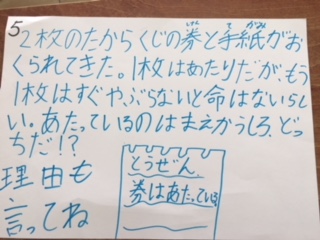 5
2枚のたからくじの券と手紙がお
けん てがみ
くられてきた。1枚はあたりだが、もう
1枚はすぐやぶらないと命はないらし
い。あたっているのはまえかうしろ、どっ
ちだ!?
理由も
言ってね
とうぜん、
券はあたっている